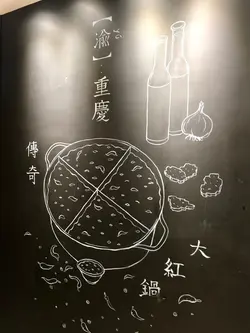 【渝】yú
重慶
傳奇
大紅鍋